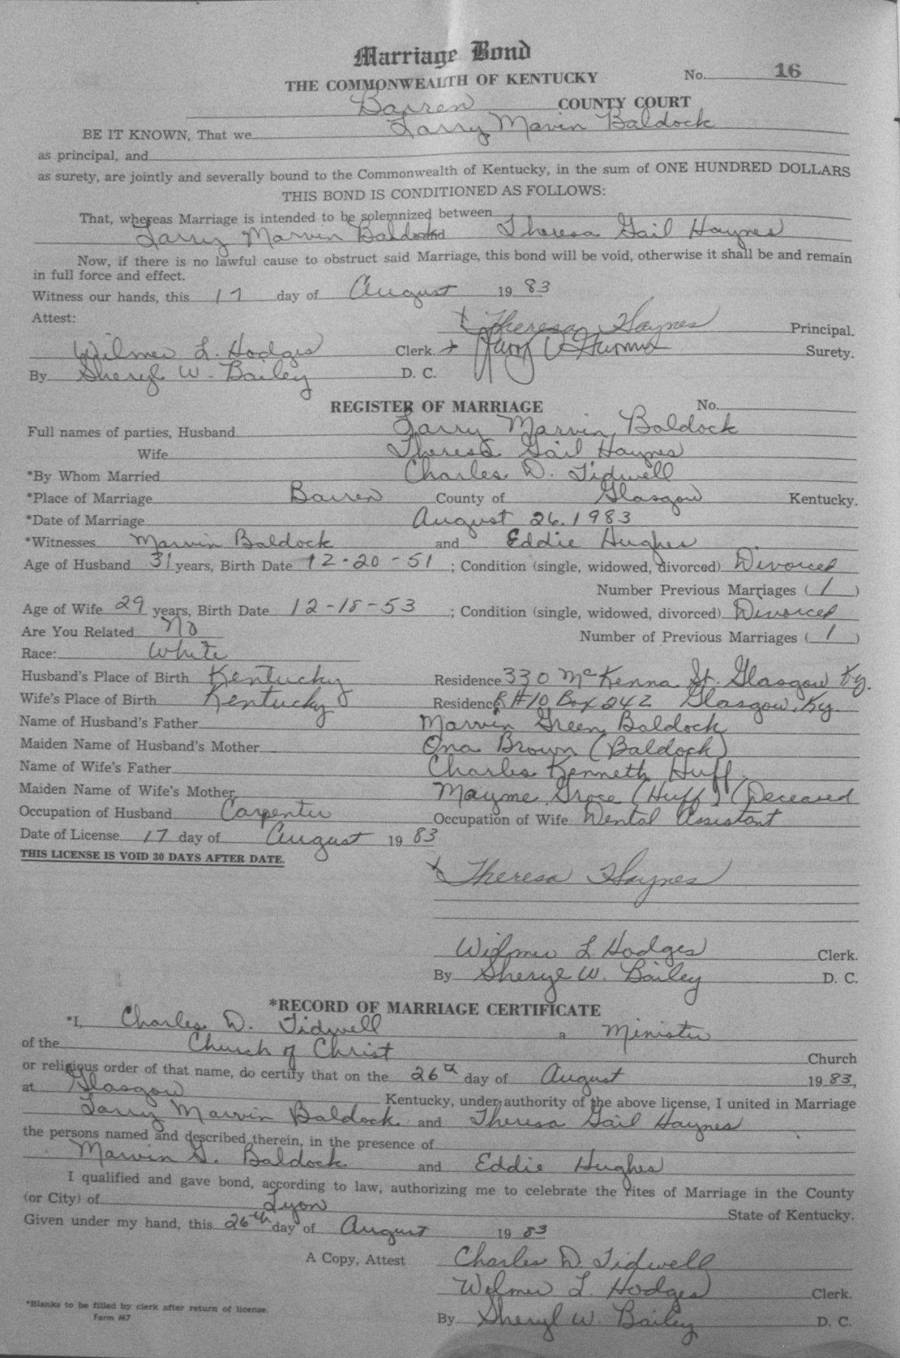 Marriage Bond
THE COMMONWEALTH OF KENTUCKY No. 16
Barren COUNTY COURT
BE IT KNOWN, That we Larry Marvin Baldock
as principal, and
as surety, are jointly and severally bound to the Commonwealth of Kentucky, in the sum of ONE HUNDRED DOLLARS
THIS BOND IS CONDITIONED AS FOLLOWS:
That, whereas Marriage is intended to be solemnized between
Larry Marvin Baldock and Theresa Gail Haynes
Now, if there is no lawful cause to obstruct said Marriage, this bond will be void, otherwise it shall be and remain
in full force and effect.
Witness our hands, this 17 day of August 19 83
Attest: x Theresa Haynes Principal.
Wilmer L. Hodges Clerk. x Surety.
By Sheryl W. Bailey D. C.
REGISTER OF MARRIAGE No.
Full names of parties, Husband Larry Marvin Baldock
Wife Theresa Gail Haynes
*By Whom Married Charles D. Tidwell
*Place of Marriage Barren County of Glasgow Kentucky.
*Date of Marriage August 26, 1983
*Witnesses Marvin Baldock and Eddie Hughes
Age of Husband 31 years, Birth Date 12-20-51 ; Condition (single, widowed, divorced) Divorced
Number Previous Marriages ( 1 )
Age of Wife 29 years, Birth Date 12-18-53 ; Condition (single, widowed, divorced) Divorced
Are You Related No Number of Previous Marriages ( 1 )
Race: White
Husband's Place of Birth Kentucky Residence 330 McKenna St. Glasgow Ky.
Wife's Place of Birth Kentucky Residence R#10 Box 242 Glasgow, Ky.
Name of Husband's Father Marvin Green Baldock
Maiden Name of Husband's Mother Ona Brown (Baldock)
Name of Wife's Father Charles Kenneth Huff
Maiden Name of Wife's Mother Mayme Groce (Huff) (Deceased
Occupation of Husband Carpenter Occupation of Wife Dental Assistant
Date of License 17 day of August 19 83
THIS LICENSE IS VOID 30 DAYS AFTER DATE.
x Theresa Haynes
Wilmer L Hodges Clerk.
By Sheryl W. Bailey D. C.
*RECORD OF MARRIAGE CERTIFICATE
*I, Charles D. Tidwell a Minister
of the Church of Christ Church
or religious order of that name, do certify that on the 26th day of August 19 83,
at Glasgow Kentucky, under authority of the above license, I united in Marriage
Larry Marvin Baldock and Theresa Gail Haynes
the persons named and described therein, in the presence of
Marvin G. Baldock and Eddie Hughes
I qualified and gave bond, according to law, authorizing me to celebrate the rites of Marriage in the County
(or City) of Lyon State of Kentucky.
Given under my hand, this 26th day of August 19 83
A Copy, Attest Charles D. Tidwell
Wilmer L. Hodges Clerk.
By Sheryl W. Bailey D. C.
*Blanks to be filled by clerk after return of license.
Form M7